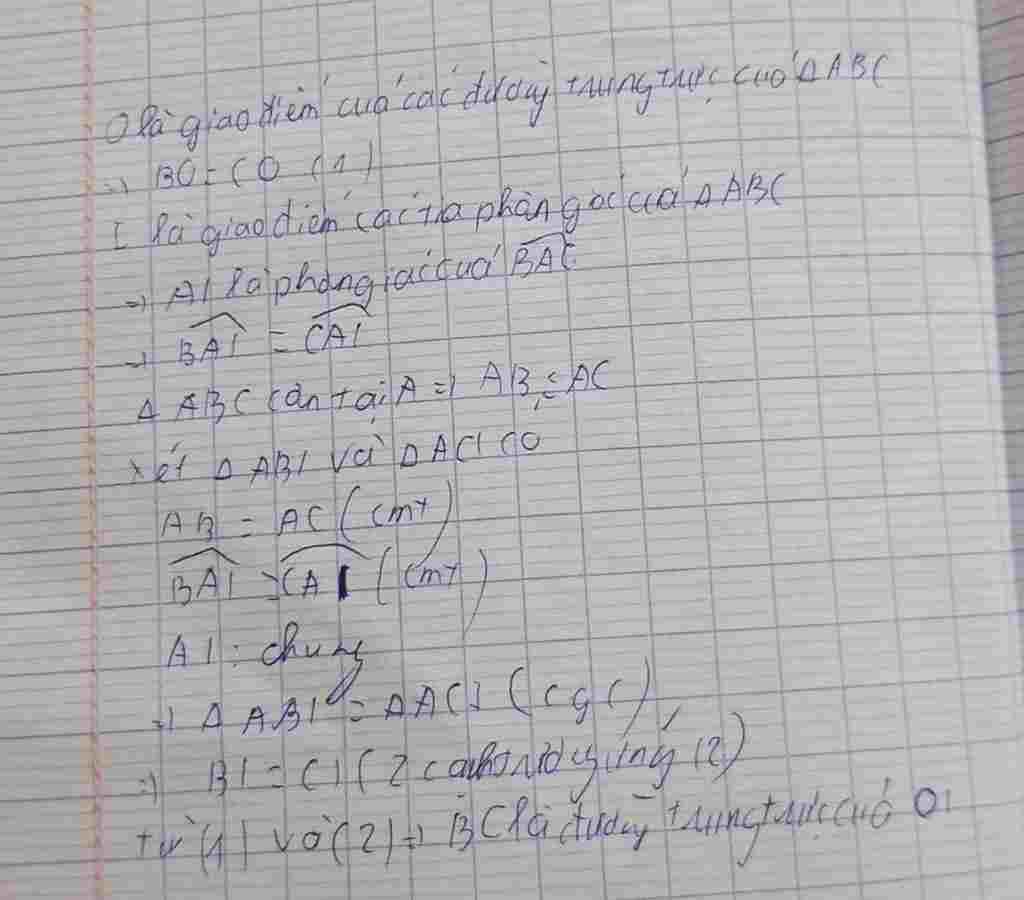 O là giao điểm của các đường trung trực của ΔABC
=> BO = CO (1)
I là giao điểm các tia phân góc của ΔABC
=> AI là phân giác của BAC
=> BAI = CAI
Δ ABC cân tại A => AB = AC
Xét Δ ABI và Δ ACI có
AB = AC (cmt)
BAI = CAI (cmt)
AI : chung
=> Δ ABI = ΔACI (cgc)
=> BI = CI (2 cạnh tương ứng) (2)
từ (1) và (2) => BC là đường trung trực của OI